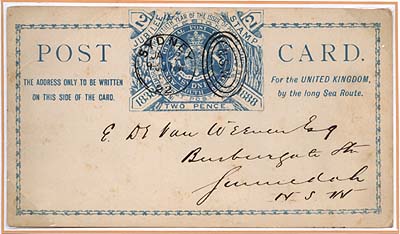 JUBILEE YEAR OF THE ISSUE STAMP
2 2
SYDNEY
POST CARD.
THE ADDRESS ONLY TO BE WRITTEN
ON THIS SIDE OF THE CARD.
For the UNITED KINGDOM,
by the long Sea Route.
1838 1888
TWO PENCE
E. De Van Weenen Esq
Burburgate Stn
Gunnedah
N. S. W